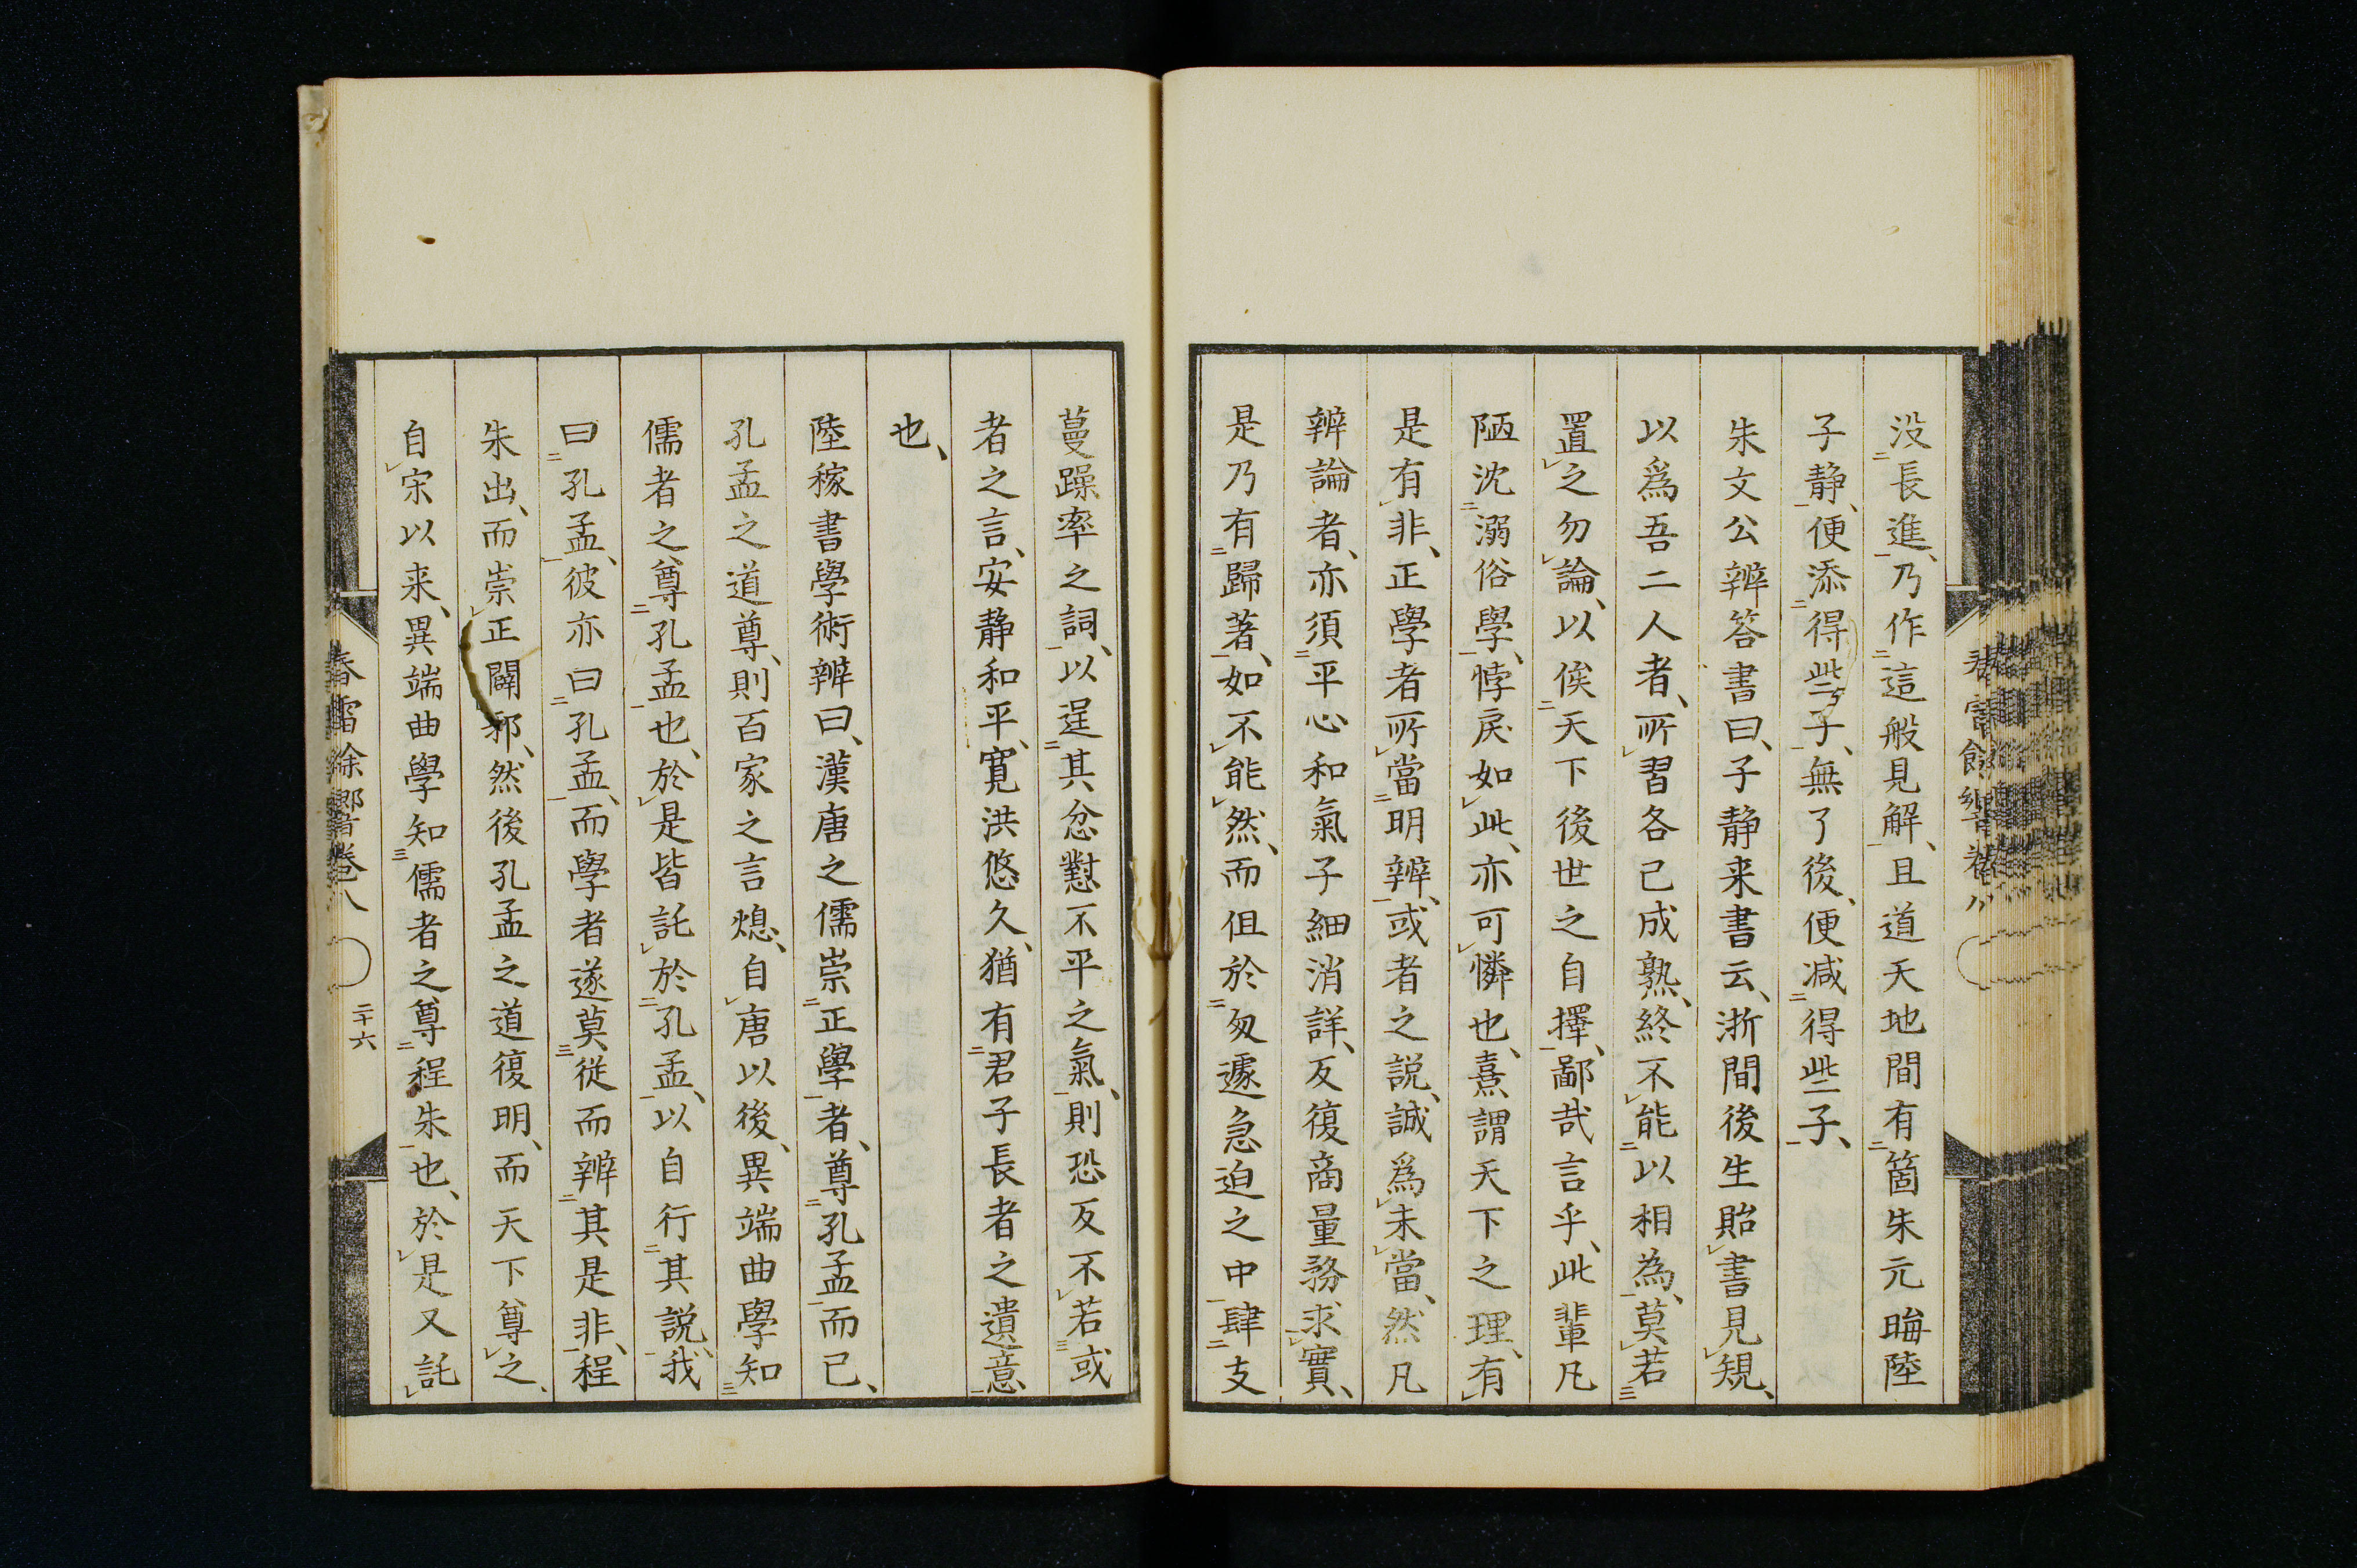 没長進、乃作這般見解、且道天地間有箇朱元晦陸
子静、便添得些子、無了後、便減得些子、
朱文公辨答書曰、子静来書云、浙間後生貽書見規、
以爲吾二人者、所習各已成熟、終不能以相為、莫若
置之勿論、以俟天下後世之自擇、鄙哉言乎、此輩凡
陋沈溺俗學、悖戻如此、亦可憐也、熹謂天下之理、有
是有非、正學者所當明辨、或者之説、誠爲未當、然凡
辨論者、亦須平心和氣子細消詳、反復商量務求實、
是乃有歸著、如不能然、而但於匆遽急迫之中肆支
蔓躁率之詞、以逞其忿懟不平之氣、則恐反不若或
者之言、安静和平、寛洪悠久、猶有君子長者之遺意
也、
陸稼書學術辨曰、漢唐之儒崇正學者、尊孔孟而已、
孔孟之道尊、則百家之言熄、自唐以後、異端曲學知
儒者之尊孔孟也、於是皆託於孔孟、以自行其説、我
曰孔孟、彼亦曰孔孟、而學者遂莫從而辨其是非、程
朱出、而崇正闢邪、然後孔孟之道復明、而天下尊之、
自宋以来、異端曲學知儒者之尊程朱也、於是又託
春雷餘響卷八
二十六